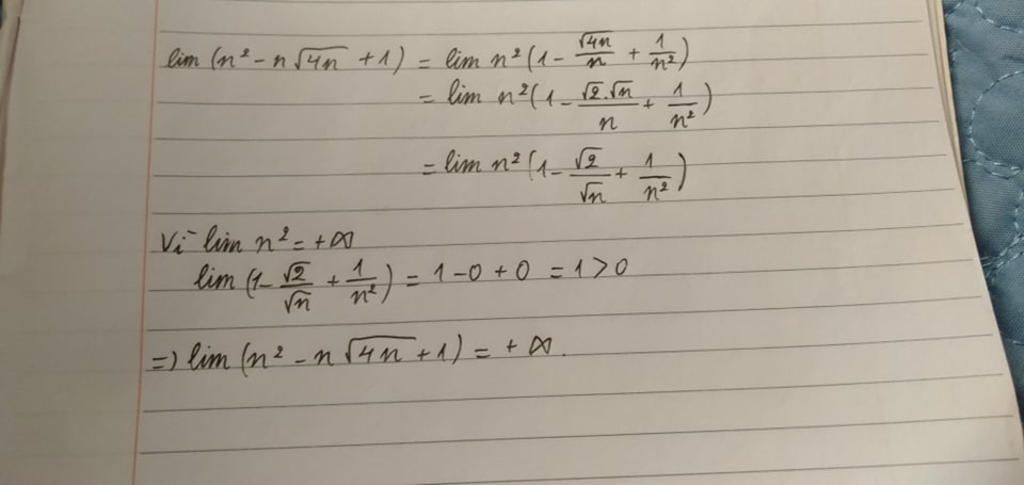 lim (n² - n√(4n) + 1) = lim n² (1 - √(4n)/n + 1/n²)
= lim n² (1 - √2.√n/n + 1/n²)
= lim n² (1 - √2/√n + 1/n²)
Vì lim n² = +∞
lim (1 - √2/√n + 1/n²) = 1 - 0 + 0 = 1 > 0
=> lim (n² - n√(4n) + 1) = +∞.